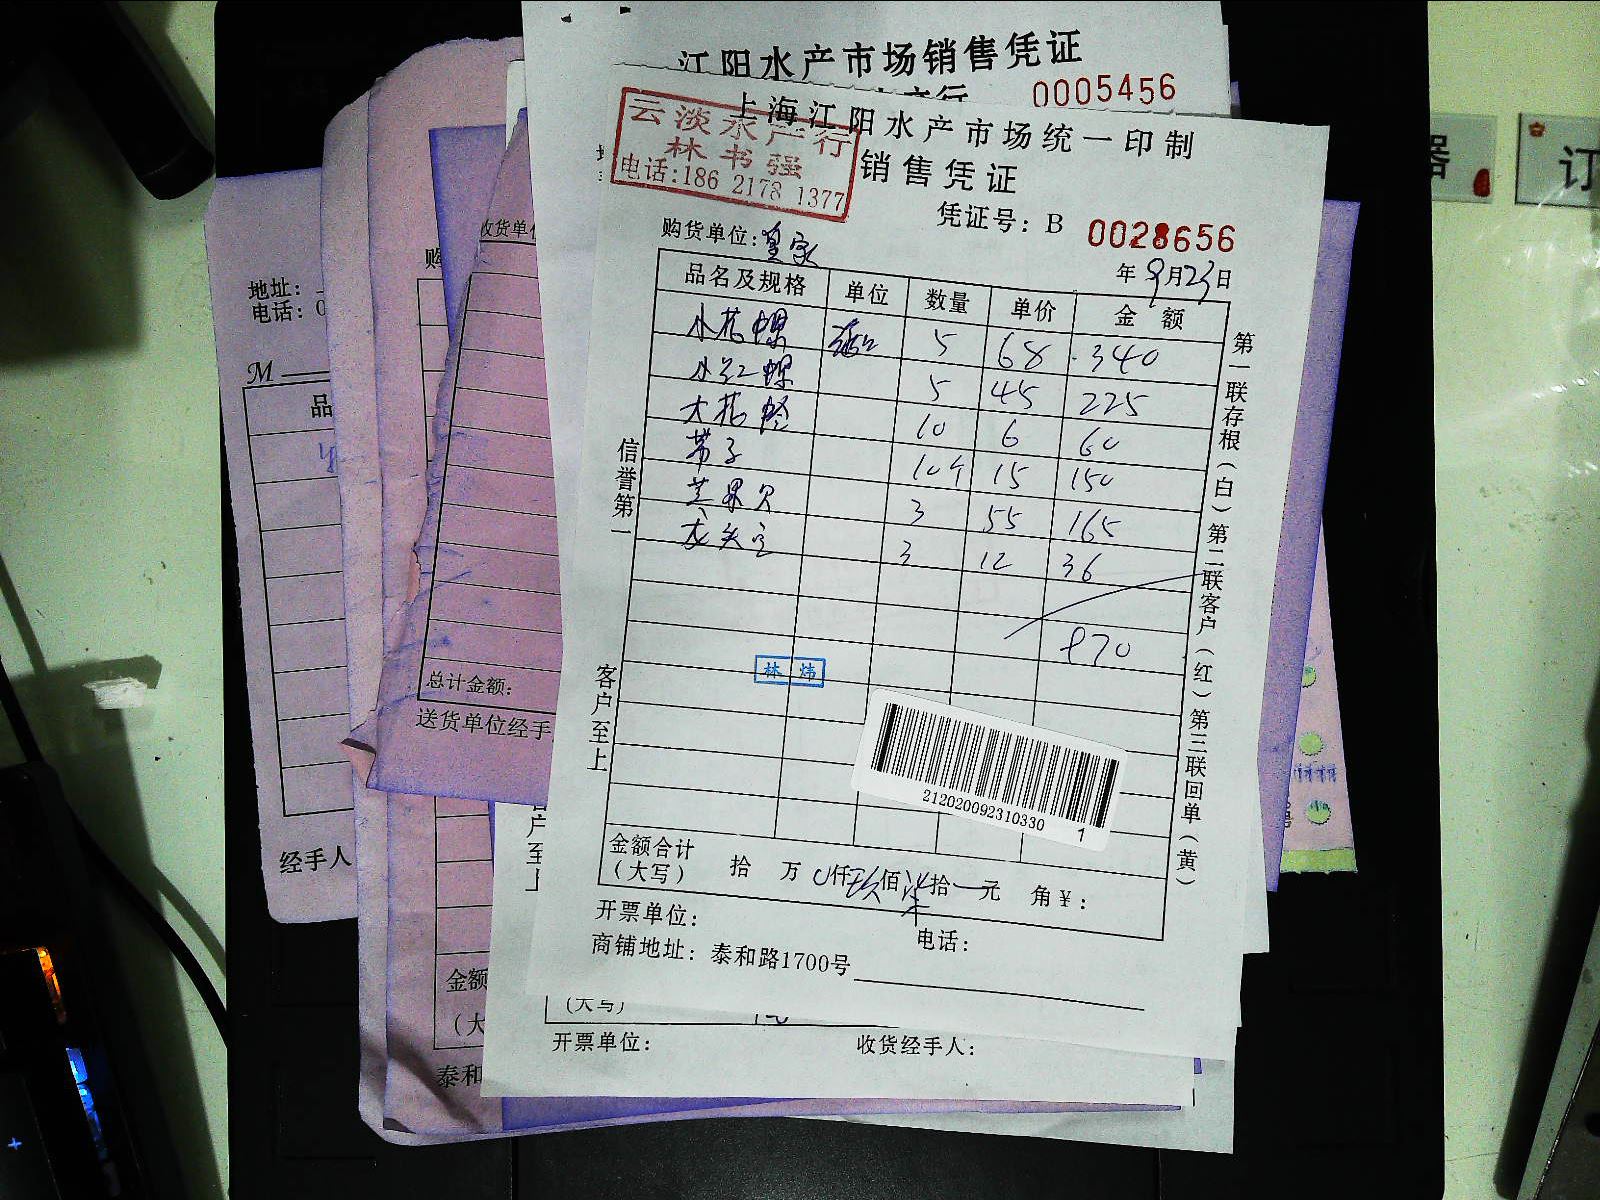 江阳水产市场销售凭证
0005456
上海江阳水产市场统一印制
云淡水产行
林书强
电话:186 2178 1377
销售凭证
凭证号: B 0028656
购货单位:皇家
年 9月23日
品名及规格 单位 数量 单价 金 额
小花螺 5 68 340
小红螺 5 45 225
大花蛤 10 6 60
带子 10个 15 150
芒果贝 3 55 165
龙头 3 12 36
970
林 炜
212020092310330 1
金额合计
(大写) 拾 万 仟玖佰柒拾 元 角¥:
开票单位:
电话:
商铺地址: 泰和路1700号
信誉第一
客户至上
第一联存根(白)第二联客户(红)第三联回单(黄)
(大写)
开票单位: 收货经手人:
收货单位
总计金额:
送货单位经手
购
地址:
电话: 0
M
品
经手人
金额
(大
泰和
户至上
器
订